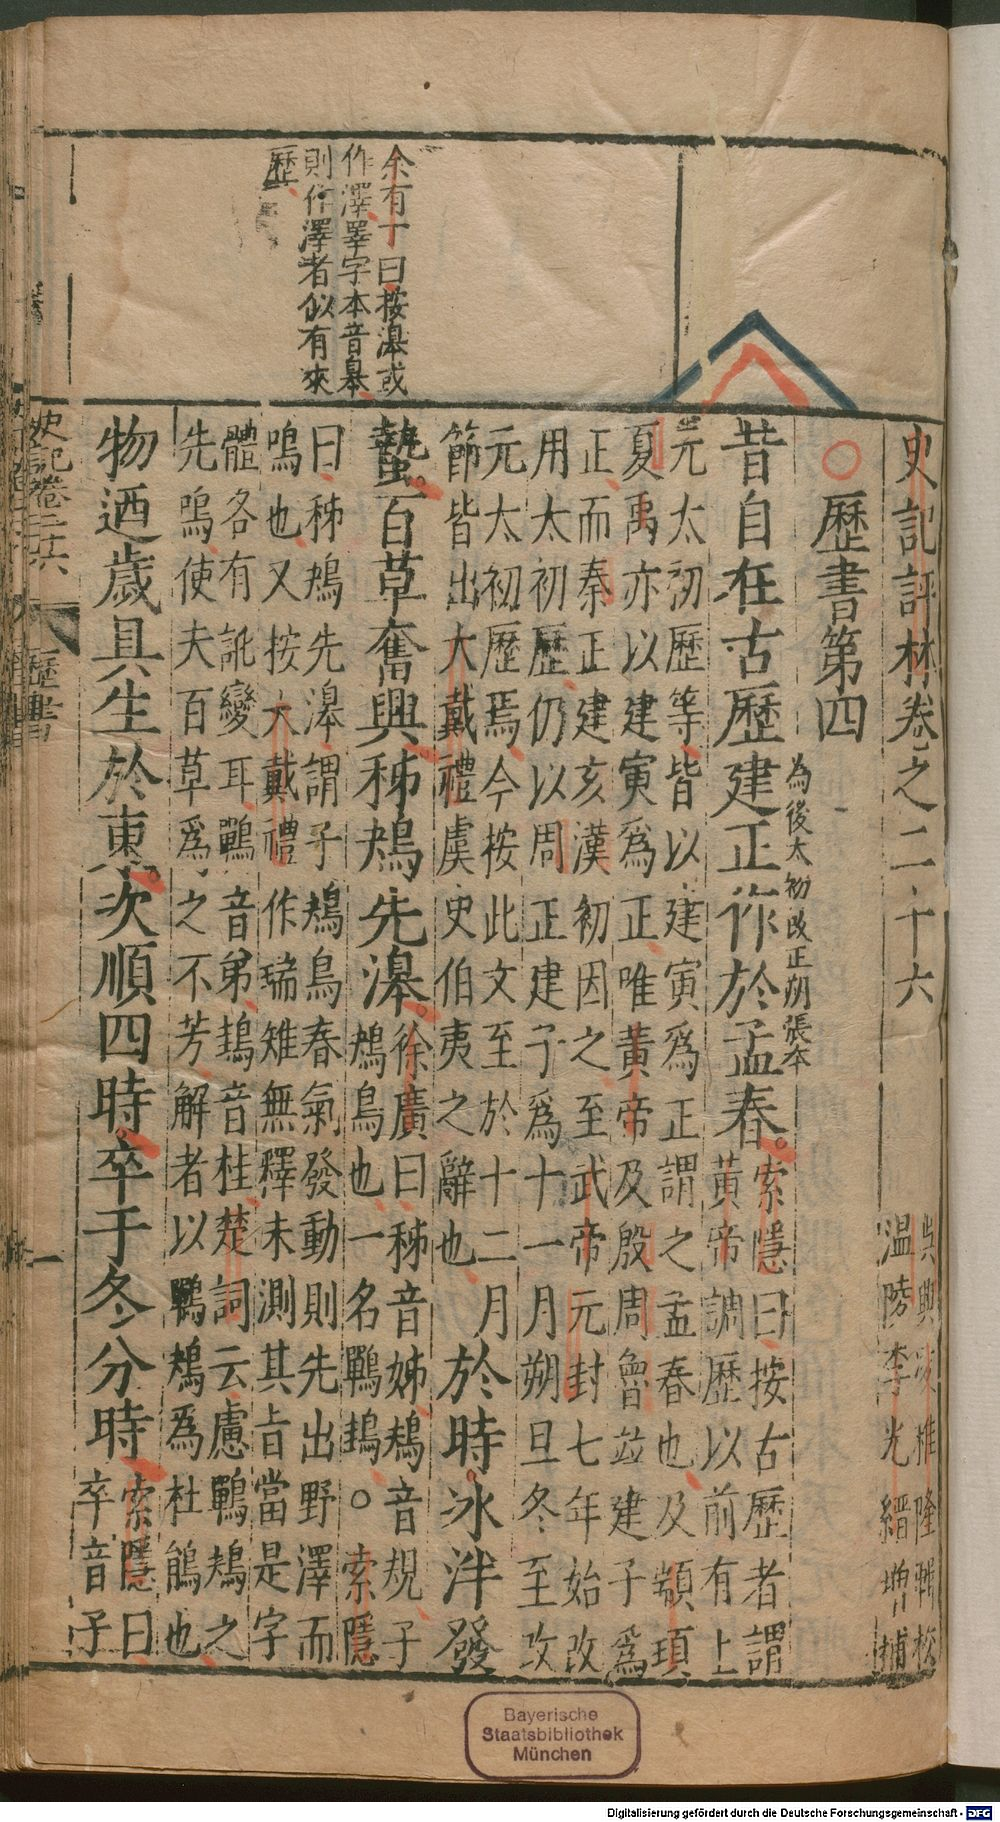 史記評林卷之二十六
吳興凌稚隆輯校
溫陵李光縉增補
歷書第四
為後太初改正朔張本
昔自在古歷建正作於孟春
索隱曰按古歷者謂
黃帝調歷以前有上
元太初歷等皆以建寅爲正謂之孟春也及顓頊
夏禹亦以建寅爲正唯黃帝及殷周魯並建子爲
正而秦正建亥漢初因之至武帝元封七年始改
用太初歷仍以周正建子爲十一月朔旦冬至改
元太初歷焉今按此文至於十二月
節皆出大戴禮虞史伯夷之辭也
於時冰泮發
蟄百草奮興秭鳺先滜
徐廣曰秭音姊鳺音規子
鳺鳥也一名鷤鴂○索隱
曰秭鳺先滜謂子鳺鳥春氣發動則先出野澤而
鳴也又按大戴禮作瑞雉無釋未測其旨當是字
體各有訛變耳鷤音弟鴂音桂楚詞云慮鷤鳺之
先鳴使夫百草爲之不芳解者以鷤鳺爲杜鵑也
物迺歲具生於東次順四時卒于冬分時
索隱曰
卒音子
余有丁曰按滜或
作澤睪字本音皋
則作澤者似有來
歷
史記卷二十六
歷書
一
Bayerische
Staatsbibliothek
München
Digitalisierung gefördert durch die Deutsche Forschungsgemeinschaft - DFG